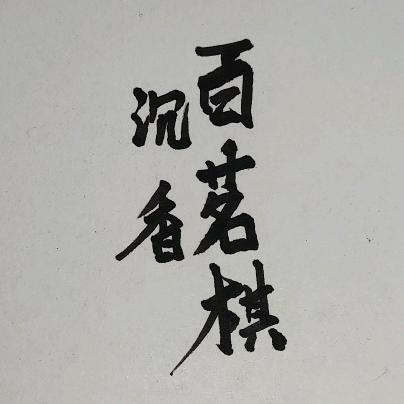 百茗棋
沉香